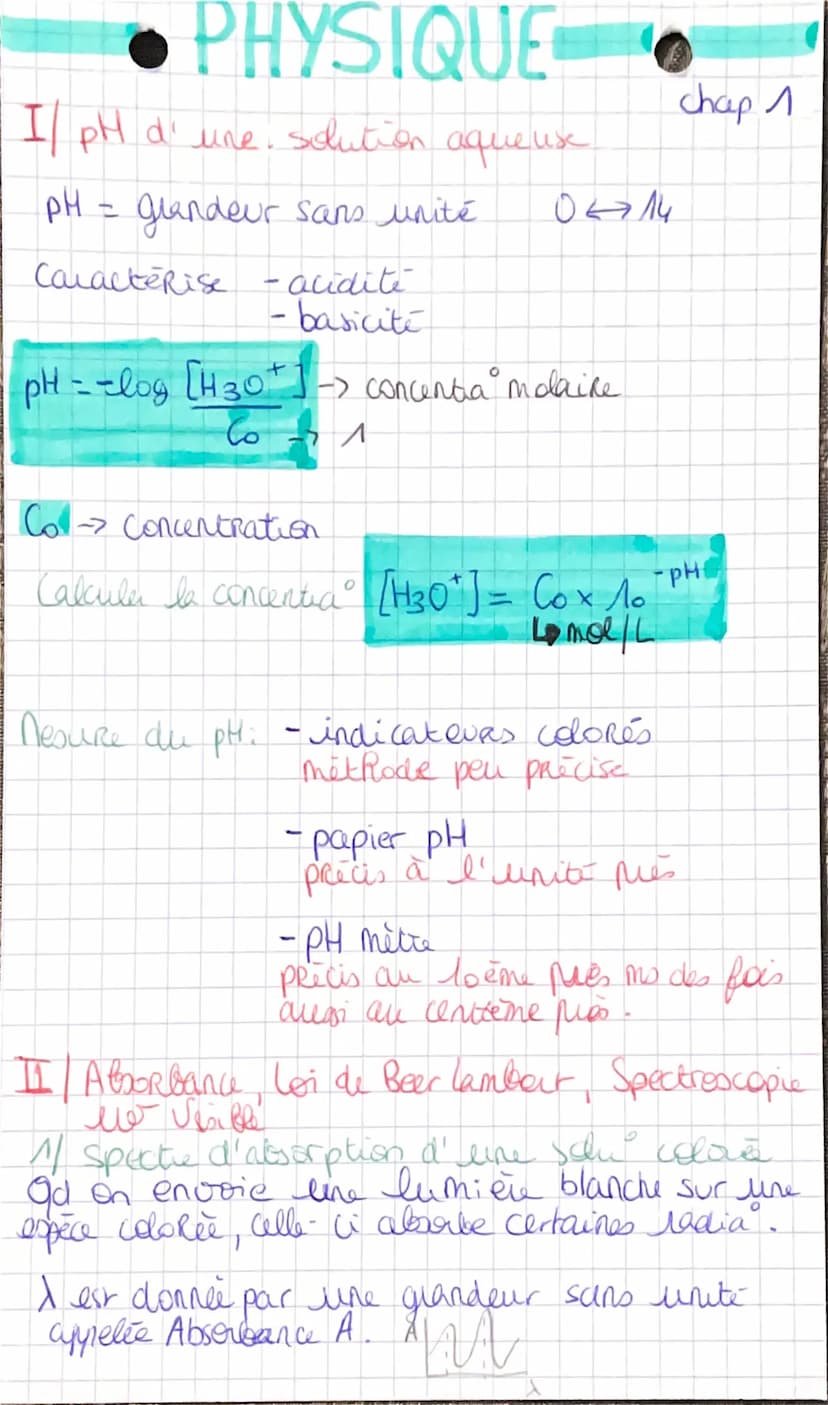 PHYSIQUE
chap 1
I/ pH d'une solution aqueuse
pH = grandeur sans unité 0 ↔ 14
Caractérise - acidité
- basicité
pH = -log [H3O+] → concentra° molaire
Co → 1
Co → concentration
Calculer la concentra° [H3O+] = Co x 10^-pH
↳ mol/L
Mesure du pH: - indicateurs colorés
méthode peu précise
- papier pH
précis à l'unité près
- pH mètre
précis au 10ème près mo des fois
aussi au centième près.
II/ Absorbance, Loi de Beer Lambert, Spectroscopie
uv visible
1/ Spectre d'absorption d'une solu° colorée
Qd on envoie une lumière blanche sur une
espèce colorée, celle-ci absorbe certaines radia°.
λ est donnée par une grandeur sans unité
appelée Absorbance A. A
λ